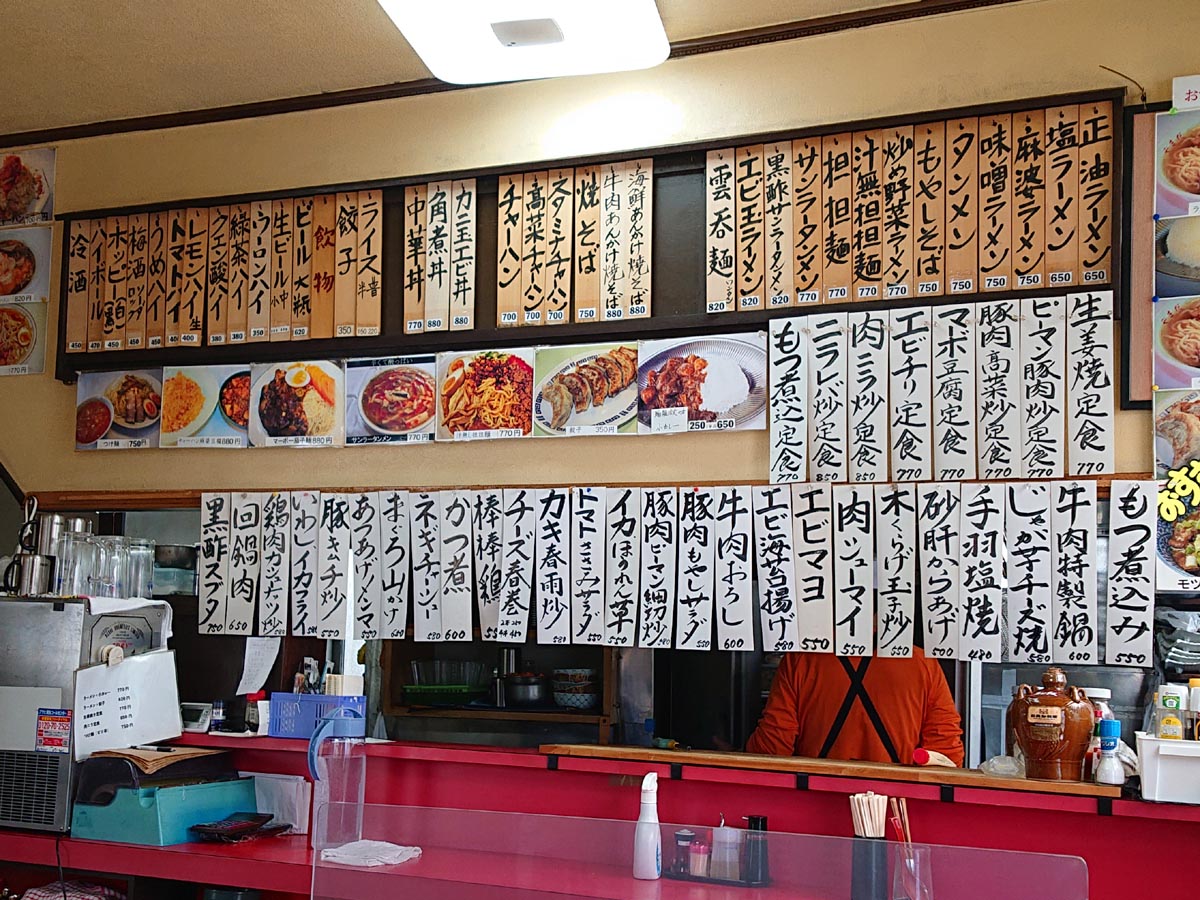 正油ラーメン 650
塩ラーメン 650
麻婆ラーメン 750
味噌ラーメン 750
タンメン 750
もやしそば 750
炒め野菜ラーメン 750
汁無担担麺 770
担担麺 770
サンラータン麺 770
黒酢サーラータンメン 820
エビ玉ラーメン 820
雲呑麺 ワンタン 820
海鮮あんかけ焼そば 880
牛肉あんかけ焼そば 880
焼そば 750
スタミナチャーハン 700
高菜チャーハン 700
チャーハン 700
カニ玉エビ丼 880
角煮丼 880
中華丼 770
ライス 半 普 150 220
餃子 350
飲物
ビール 大瓶 620
生ビール 中 小
ウーロンハイ 350
緑茶ハイ 380
クエン酸ハイ 380
レモンハイ 生
トマトハイ 400
うめハイ 400
梅酒 ソーダ ロック
ホッピー 白 黒
ハイボール
冷酒
生姜焼定食 770
ピーマン豚肉炒定食 770
豚肉高菜炒定食 770
マーボ豆腐定食 770
エビチリ定食 770
肉ニラ炒定食
ニラレバ炒定食 850
もつ煮込定食 770
つけ麺 750円
マーボー麺 880円
サンラータンメン 770円
汁無し担担麺 770円
餃子 350円
250 650
もつ煮込み 550
牛肉特製鍋 600
じゃが芋チーズ焼 580
手羽塩焼 550
砂肝からあげ
木くらげ玉子炒 550
肉シューマイ 550
エビマヨ 550
エビ海苔揚げ
牛肉おろし 600
豚肉もやしサラダ 550
豚肉ピーマン細切炒 550
イカほうれん草 550
トマトささみサラダ 550
カキ春雨炒 580
チーズ春巻
棒棒鶏
かつ煮 600
ネギチャーシュー 580
まぐろ山かけ
あつあげメンマ
豚キムチ炒
いわしイカフライ
鶏肉カシューナッツ炒
回鍋肉 650
黒酢スブタ 750
0120-70-2525